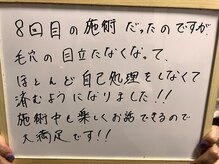 8回目の施術だったのですが
毛穴の目立たなくなって、
ほとんど自己処理をしなくて
済むようになりました!!
施術中も楽しくお話できるので
大満足です!!